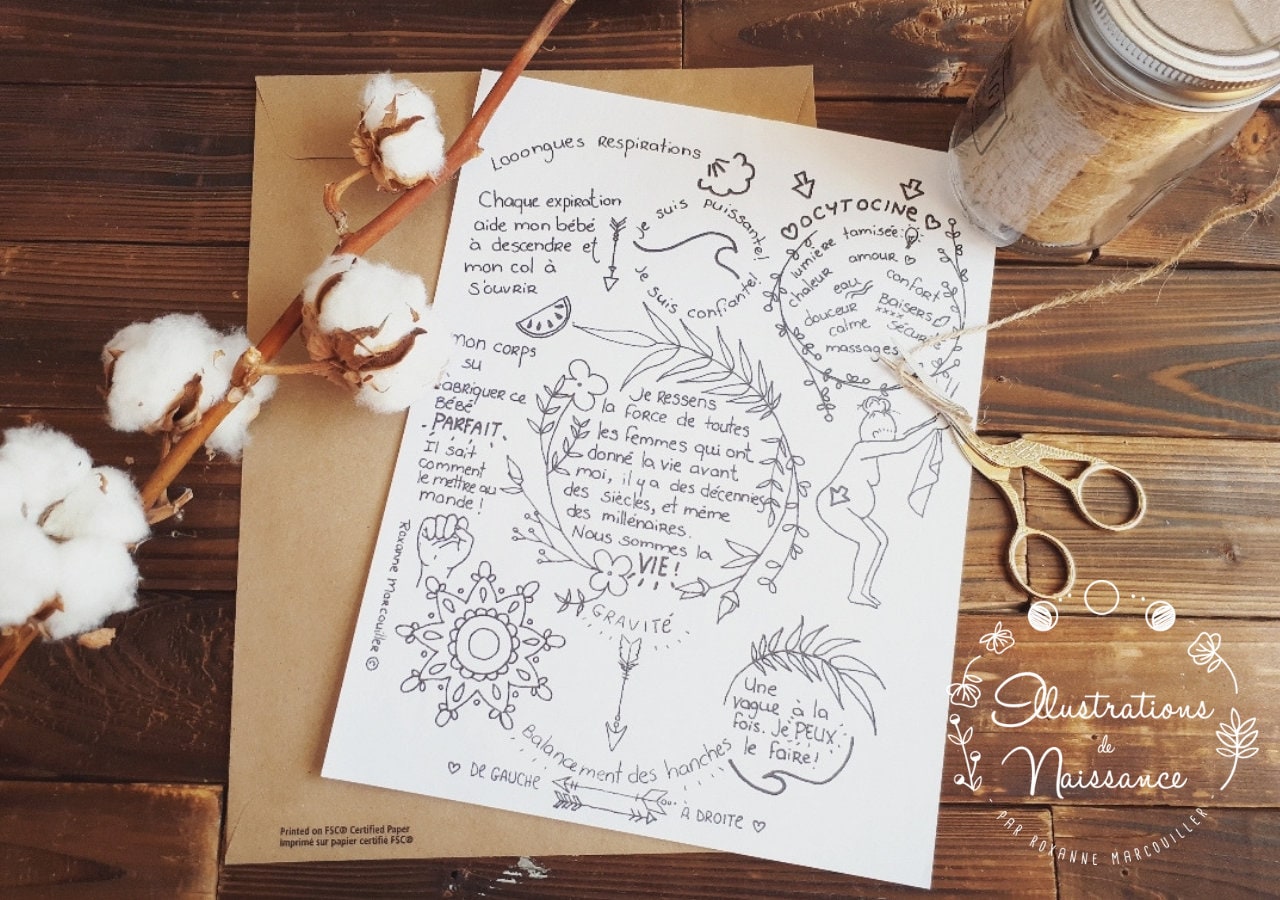 Looongues Respirations
Chaque expiration
aide mon bébé
à descendre et
mon col à
s'ouvrir
je suis puissante!
je suis confiante!
OCYTOCINE
lumière tamisée:
chaleur amour
eau confort
douceur Baisers
xxxx
calme
massages
mon corps
su
ce
Bébé
PARFAIT.
Il sait
comment
le mettre au
monde!
Je Ressens
la force de toutes
les femmes qui ont
donné la vie avant
moi, il y a des décennies,
des siècles, et même
des millénaires.
Nous sommes la
VIE!
Roxanne Marcouiller ©
GRAVITÉ
Une
vague à la
fois. Je PEUX
le faire!
Balancement des hanches
DE GAUCHE
À DROITE
Printed on FSC® Certified Paper
Imprimé sur papier certifié FSC®
Illustrations
de
Naissance
PAR ROXANNE MARCOUILLER